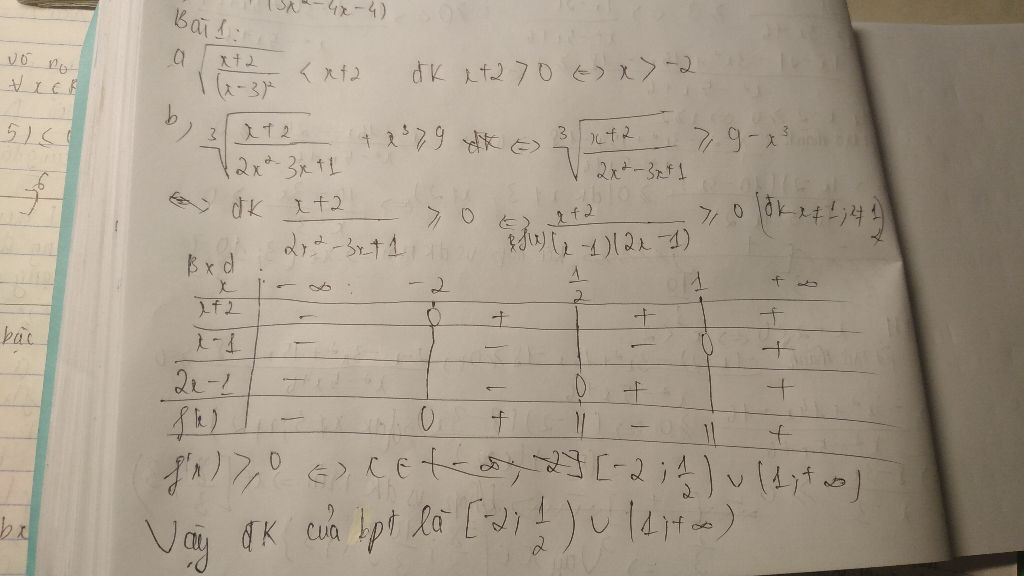 (3x²-4x-4)
Bài 1:
a √((x+2)/(x-3)²) < x+2 đk x+2 > 0 <=> x > -2
b, ³√((x+2)/(2x²-3x+1)) + x³ ≥ 9 <=> ³√((x+2)/(2x²-3x+1)) ≥ 9 - x³
<=> đk (x+2)/(2x²-3x+1) ≥ 0 <=> (x+2)/((x-1)(2x-1)) ≥ 0 (đk x≠1; ≠1/2)
Bxd:
x -∞ -2 1/2 1 +∞
x+2 - 0 + + +
x-1 - - - 0 +
2x-1 - - 0 + +
f(x) - 0 + || - || +
f(x) ≥ 0 <=> x ∈ [-2; 1/2) ∪ (1; +∞)
Vậy đk của bpt là [-2; 1/2) ∪ (1; +∞)
vô no
∀x∈R
5) ≤ 0
bài
bx